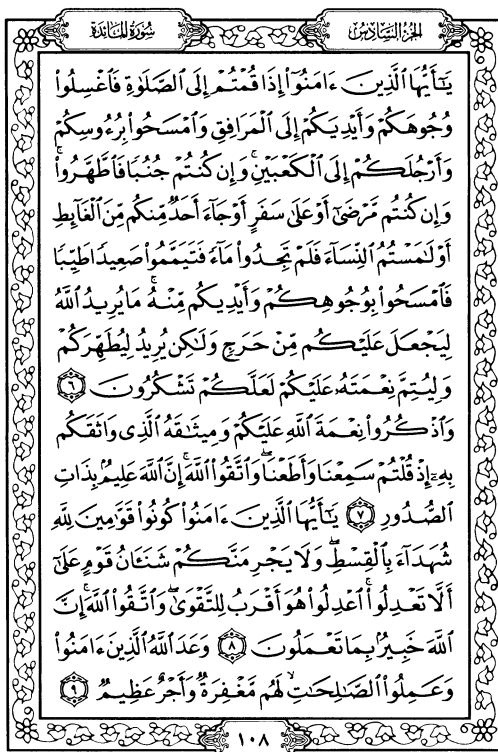 الجزء السادس
سورة المائدة
يَٰٓأَيُّهَا ٱلَّذِينَ ءَامَنُوٓا۟ إِذَا قُمْتُمْ إِلَى ٱلصَّلَوٰةِ فَٱغْسِلُوا۟
وُجُوهَكُمْ وَأَيْدِيَكُمْ إِلَى ٱلْمَرَافِقِ وَٱمْسَحُوا۟ بِرُءُوسِكُمْ
وَأَرْجُلَكُمْ إِلَى ٱلْكَعْبَيْنِ ۚ وَإِن كُنتُمْ جُنُبًا فَٱطَّهَّرُوا۟ ۚ
وَإِن كُنتُم مَّرْضَىٰٓ أَوْ عَلَىٰ سَفَرٍ أَوْ جَآءَ أَحَدٌ مِّنكُم مِّنَ ٱلْغَآئِطِ
أَوْ لَٰمَسْتُمُ ٱلنِّسَآءَ فَلَمْ تَجِدُوا۟ مَآءً فَتَيَمَّمُوا۟ صَعِيدًا طَيِّبًا
فَٱمْسَحُوا۟ بِوُجُوهِكُمْ وَأَيْدِيكُم مِّنْهُ ۚ مَا يُرِيدُ ٱللَّهُ
لِيَجْعَلَ عَلَيْكُم مِّنْ حَرَجٍ وَلَٰكِن يُرِيدُ لِيُطَهِّرَكُمْ
وَلِيُتِمَّ نِعْمَتَهُۥ عَلَيْكُمْ لَعَلَّكُمْ تَشْكُرُونَ ٦
وَٱذْكُرُوا۟ نِعْمَةَ ٱللَّهِ عَلَيْكُمْ وَمِيثَٰقَهُ ٱلَّذِى وَاثَقَكُم
بِهِۦٓ إِذْ قُلْتُمْ سَمِعْنَا وَأَطَعْنَا ۖ وَٱتَّقُوا۟ ٱللَّهَ ۚ إِنَّ ٱللَّهَ عَلِيمٌۢ بِذَاتِ
ٱلصُّدُورِ ٧ يَٰٓأَيُّهَا ٱلَّذِينَ ءَامَنُوا۟ كُونُوا۟ قَوَّٰمِينَ لِلَّهِ
شُهَدَآءَ بِٱلْقِسْطِ ۖ وَلَا يَجْرِمَنَّكُمْ شَنَـَٔانُ قَوْمٍ عَلَىٰٓ
أَلَّا تَعْدِلُوا۟ ۚ ٱعْدِلُوا۟ هُوَ أَقْرَبُ لِلتَّقْوَىٰ ۖ وَٱتَّقُوا۟ ٱللَّهَ ۚ إِنَّ
ٱللَّهَ خَبِيرٌۢ بِمَا تَعْمَلُونَ ٨ وَعَدَ ٱللَّهُ ٱلَّذِينَ ءَامَنُوا۟
وَعَمِلُوا۟ ٱلصَّٰلِحَٰتِ ۙ لَهُم مَّغْفِرَةٌ وَأَجْرٌ عَظِيمٌ ٩
١٠٨